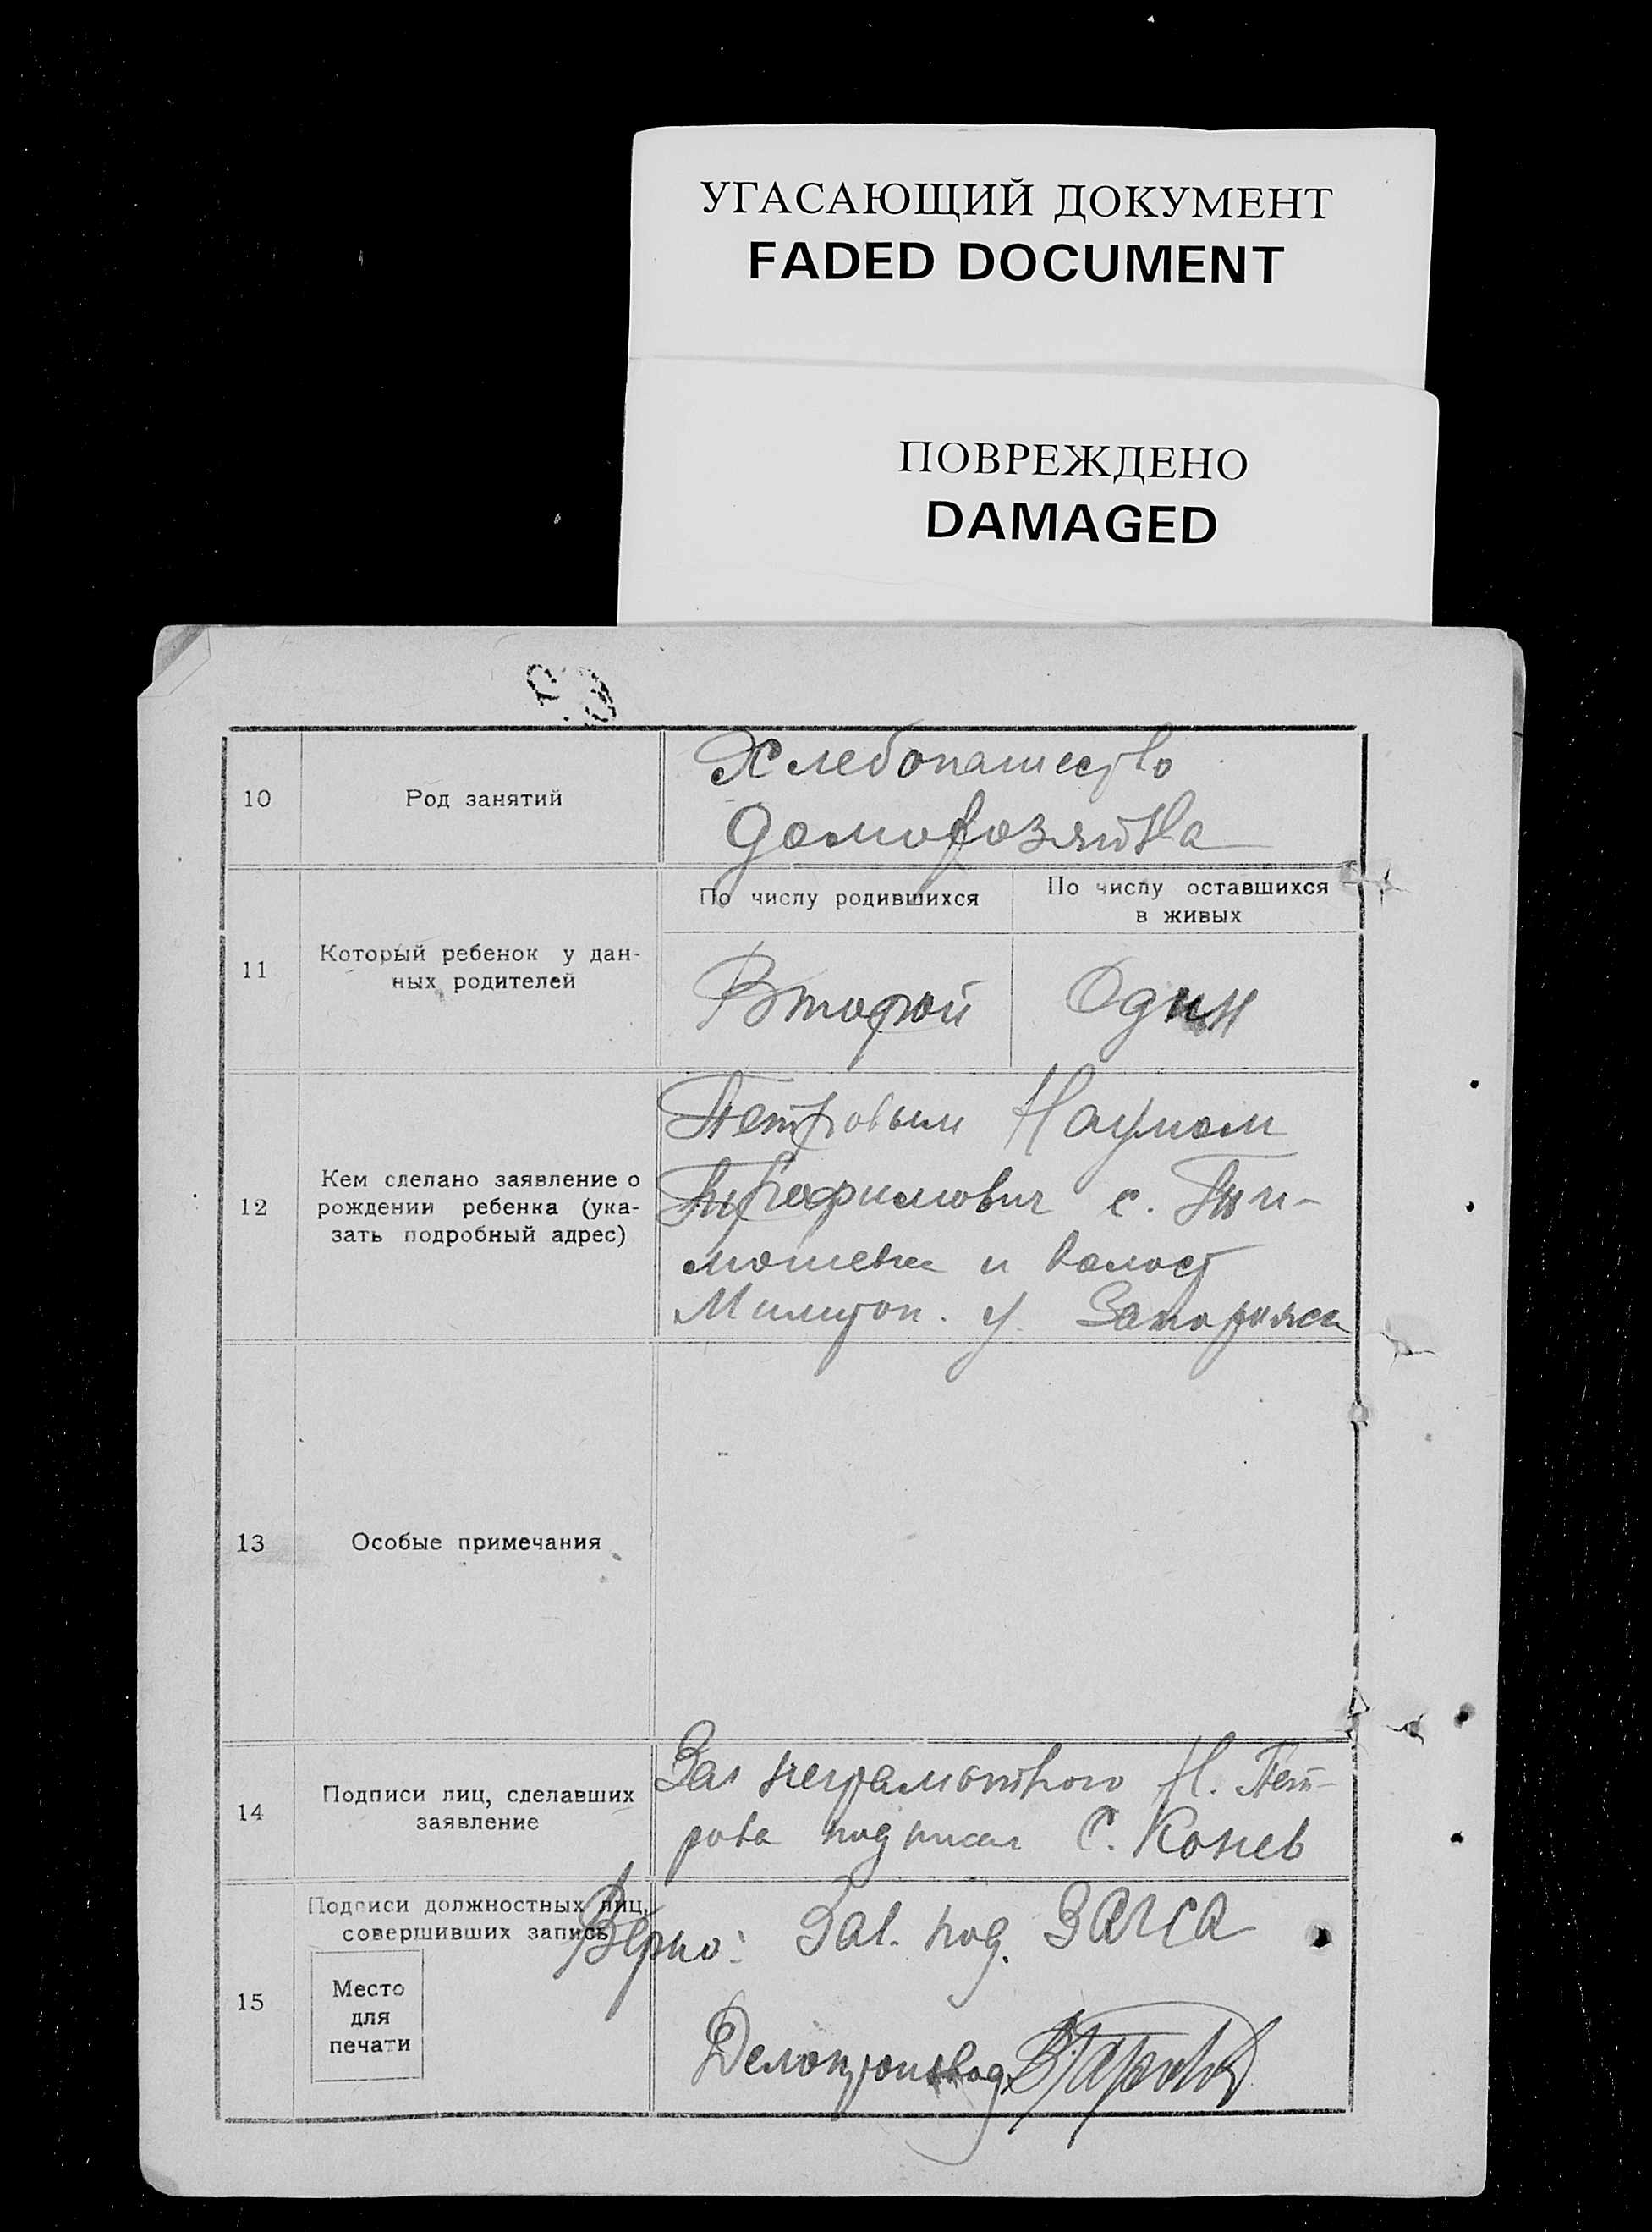 УГАСАЮЩИЙ ДОКУМЕНТ
FADED DOCUMENT
ПОВРЕЖДЕНО
DAMAGED
10
Род занятий
Хлебопашество
домохозяйка
11
Который ребенок у дан-
ных родителей
По числу родившихся
Второй
По числу оставшихся
в живых
Один
12
Кем сделано заявление о
рождении ребенка (ука-
зать подробный адрес)
Петровым Наумом
Трофимович с. Ти-
мошевки и волост
Милитоп. у. Запорожск
13
Особые примечания
14
Подписи лиц, сделавших
заявление
За неграмотного Н. Пет-
рова подписал С. Конев
15
Подписи должностных лиц,
совершивших запись
Место
для
печати
Верно: Зав. под. ЗАГСА
Делопроизвод.